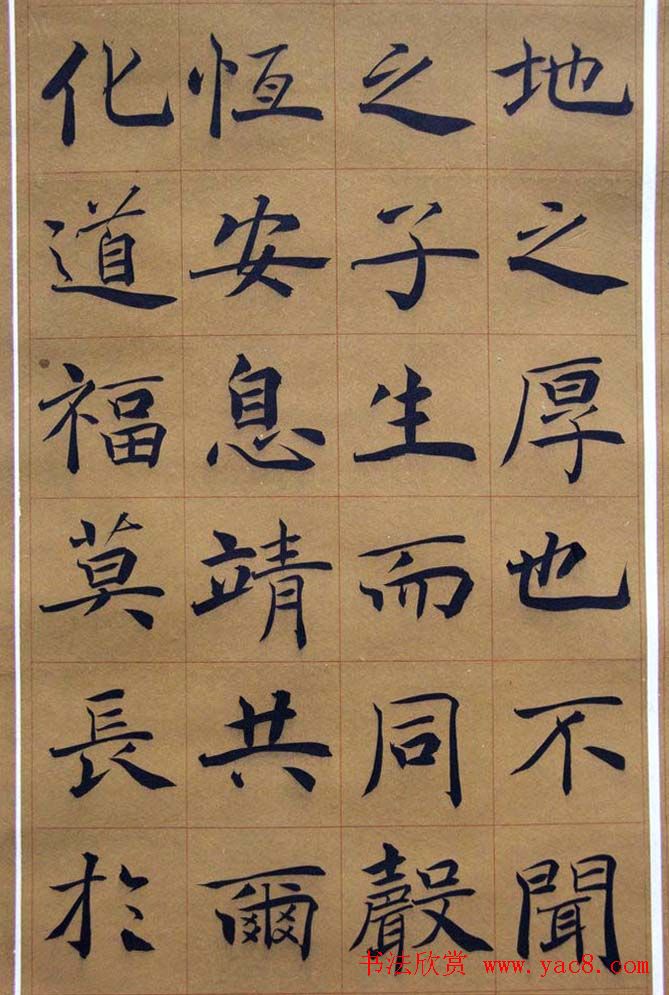 地之厚也不聞
之子生而同聲
恆安息靖共爾
化道福莫長於
书法欣赏 www.yac8.com